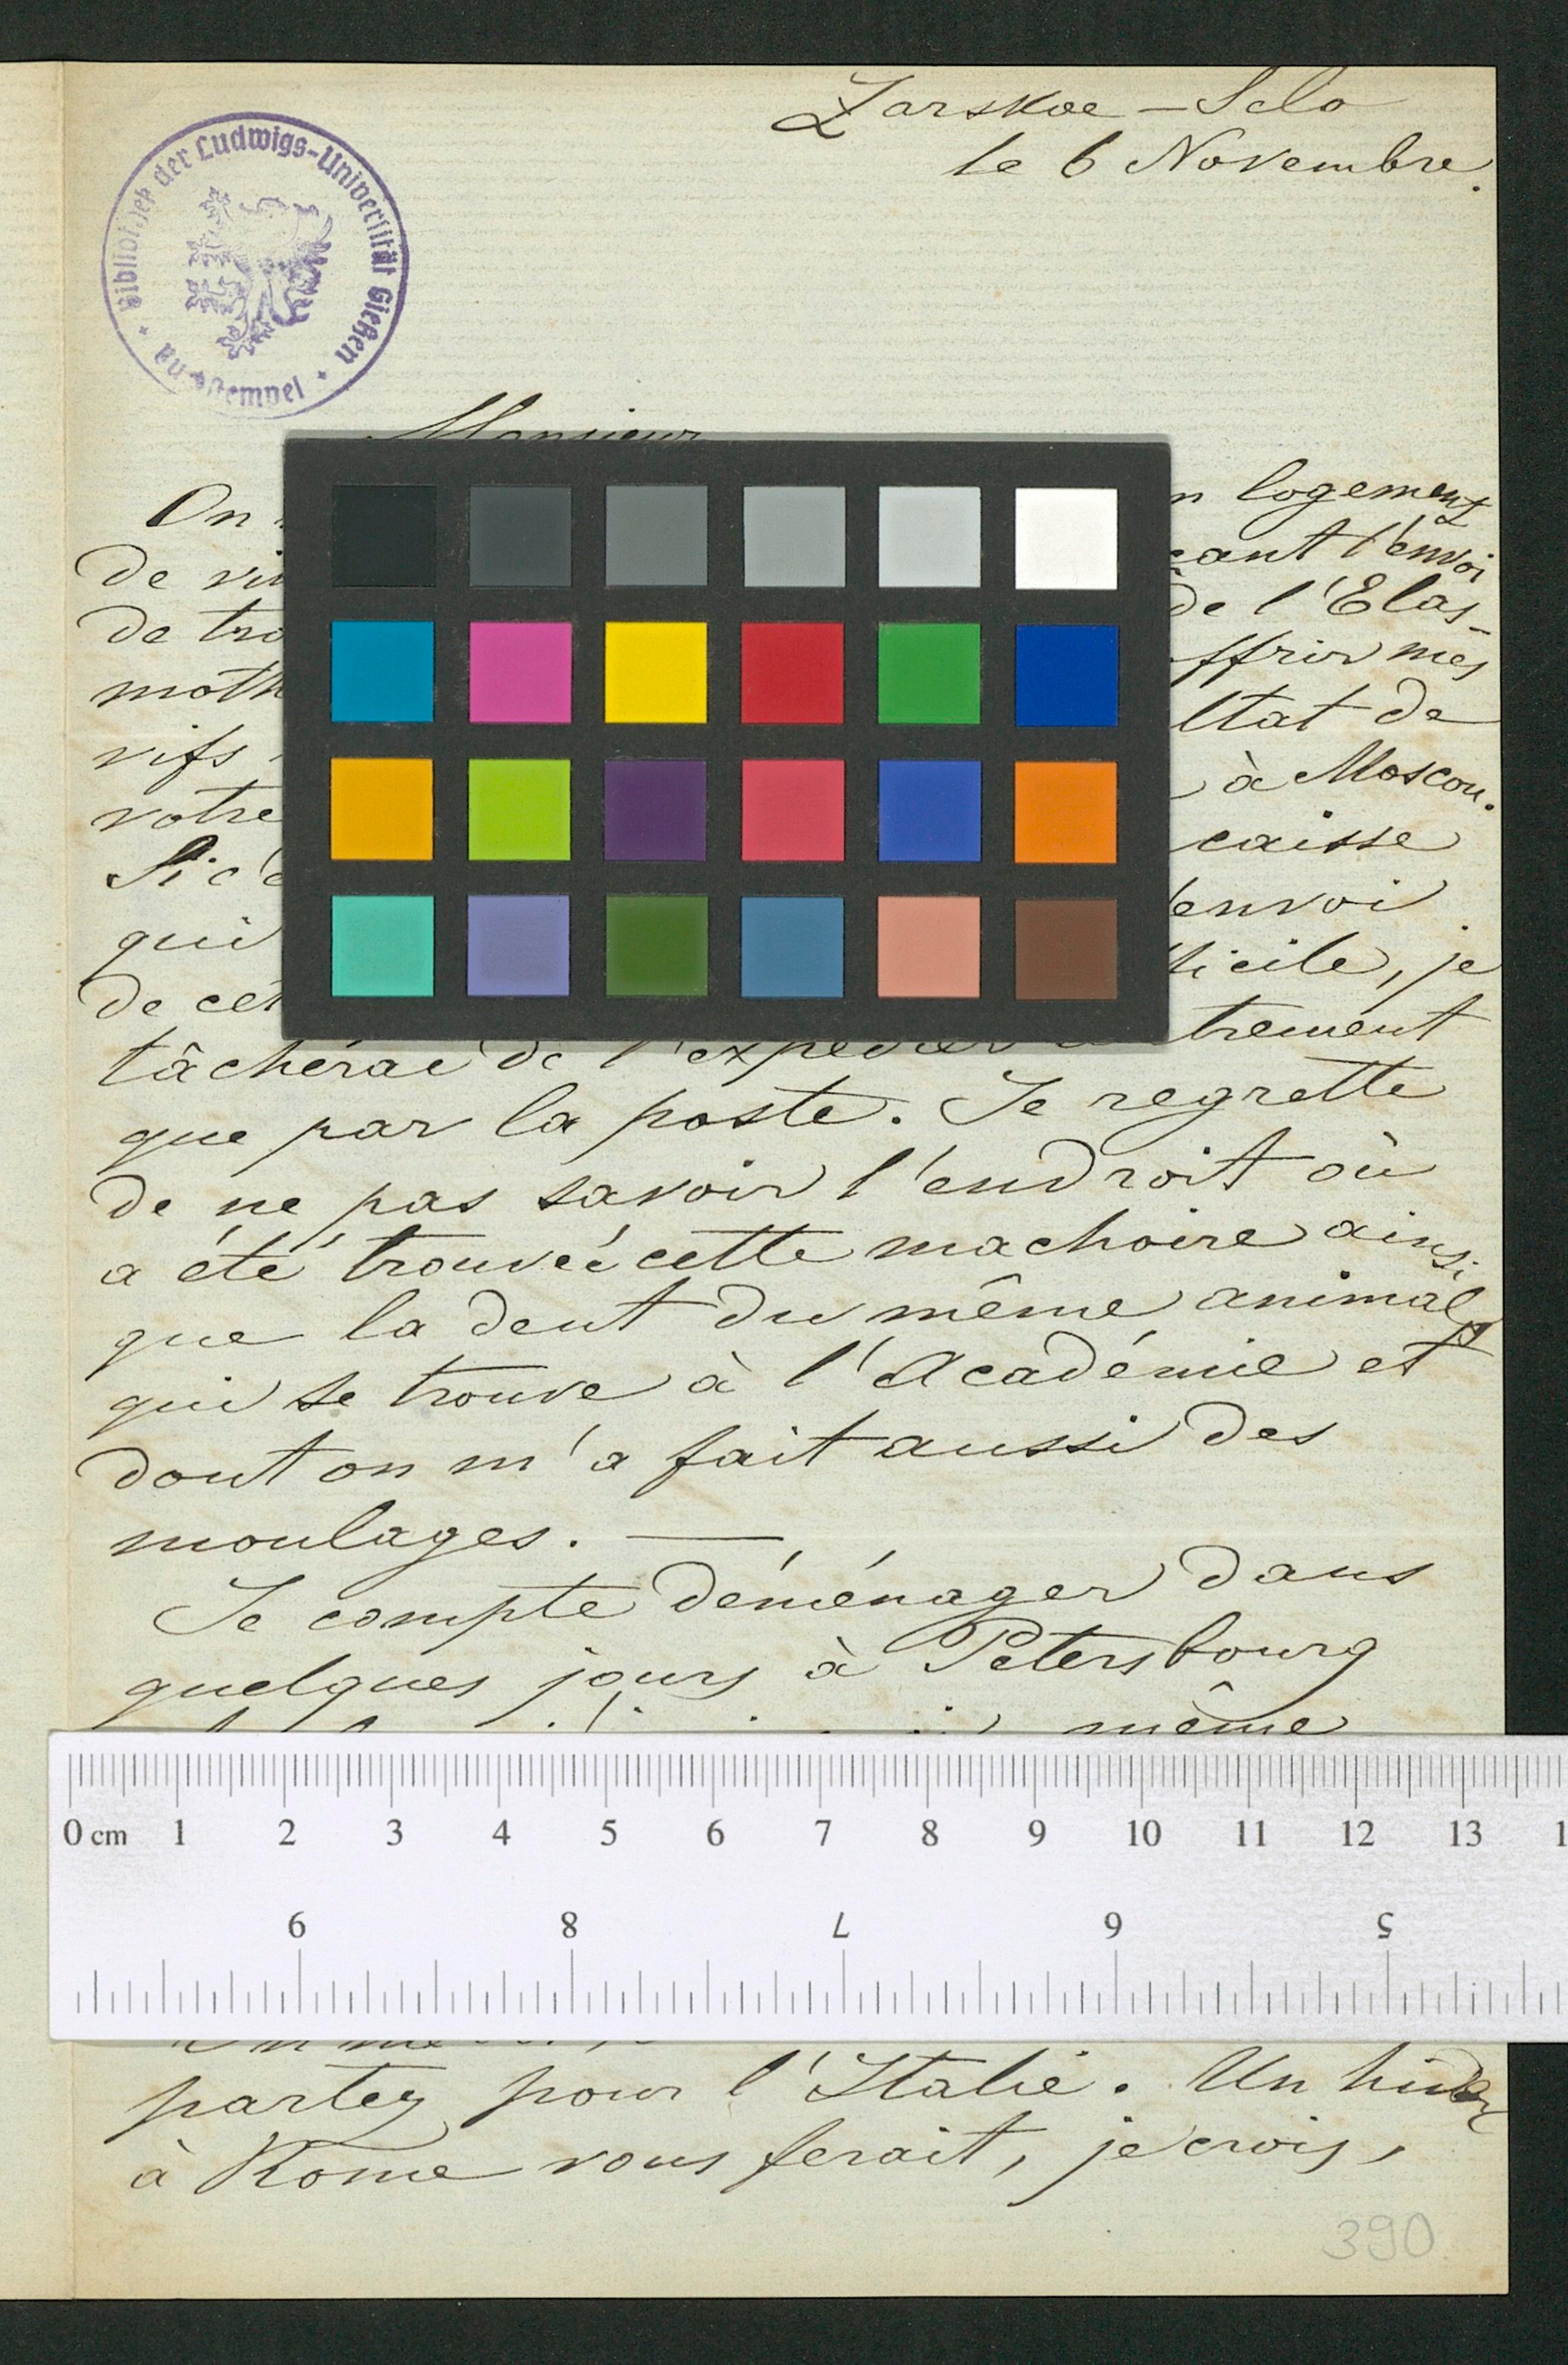 Zarskoe-Selo
le 6 Novembre.
Bibliothek der Ludwigs-Universität Gießen
Monsieur
On n logement
de vi l'envoi
de tro de l'Elas-
moth ffrir mes
vifs ltat de
votre à Moscou.
Si c'e caisse
qui envoi
de cet ficile, je
tâcherai de l'expédier autrement
que par la poste. Je regrette
de ne pas savoir l'endroit où
a été trouvée cette machoire ainsi
que la dent du même animal
qui se trouve à l'Académie et
dont on m'a fait aussi des
moulages. —
Je compte déménager dans
quelques jours à Petersbourg
même
0 cm 1 2 3 4 5 6 7 8 9 10 11 12 13 1
9 8 7 6 5
partez pour l'Italie. Un hiver
à Rome vous ferait, je crois,
390